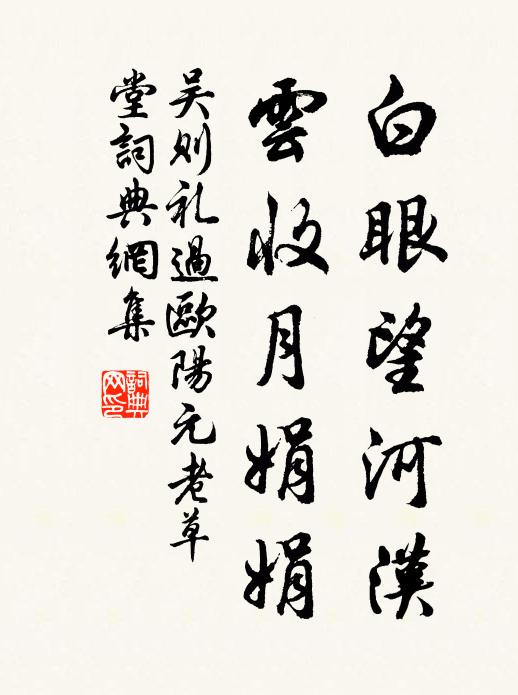 白眼望河漢
雲收月娟娟
吴则礼過歐陽元老草
堂詞典網集
詞典
网印